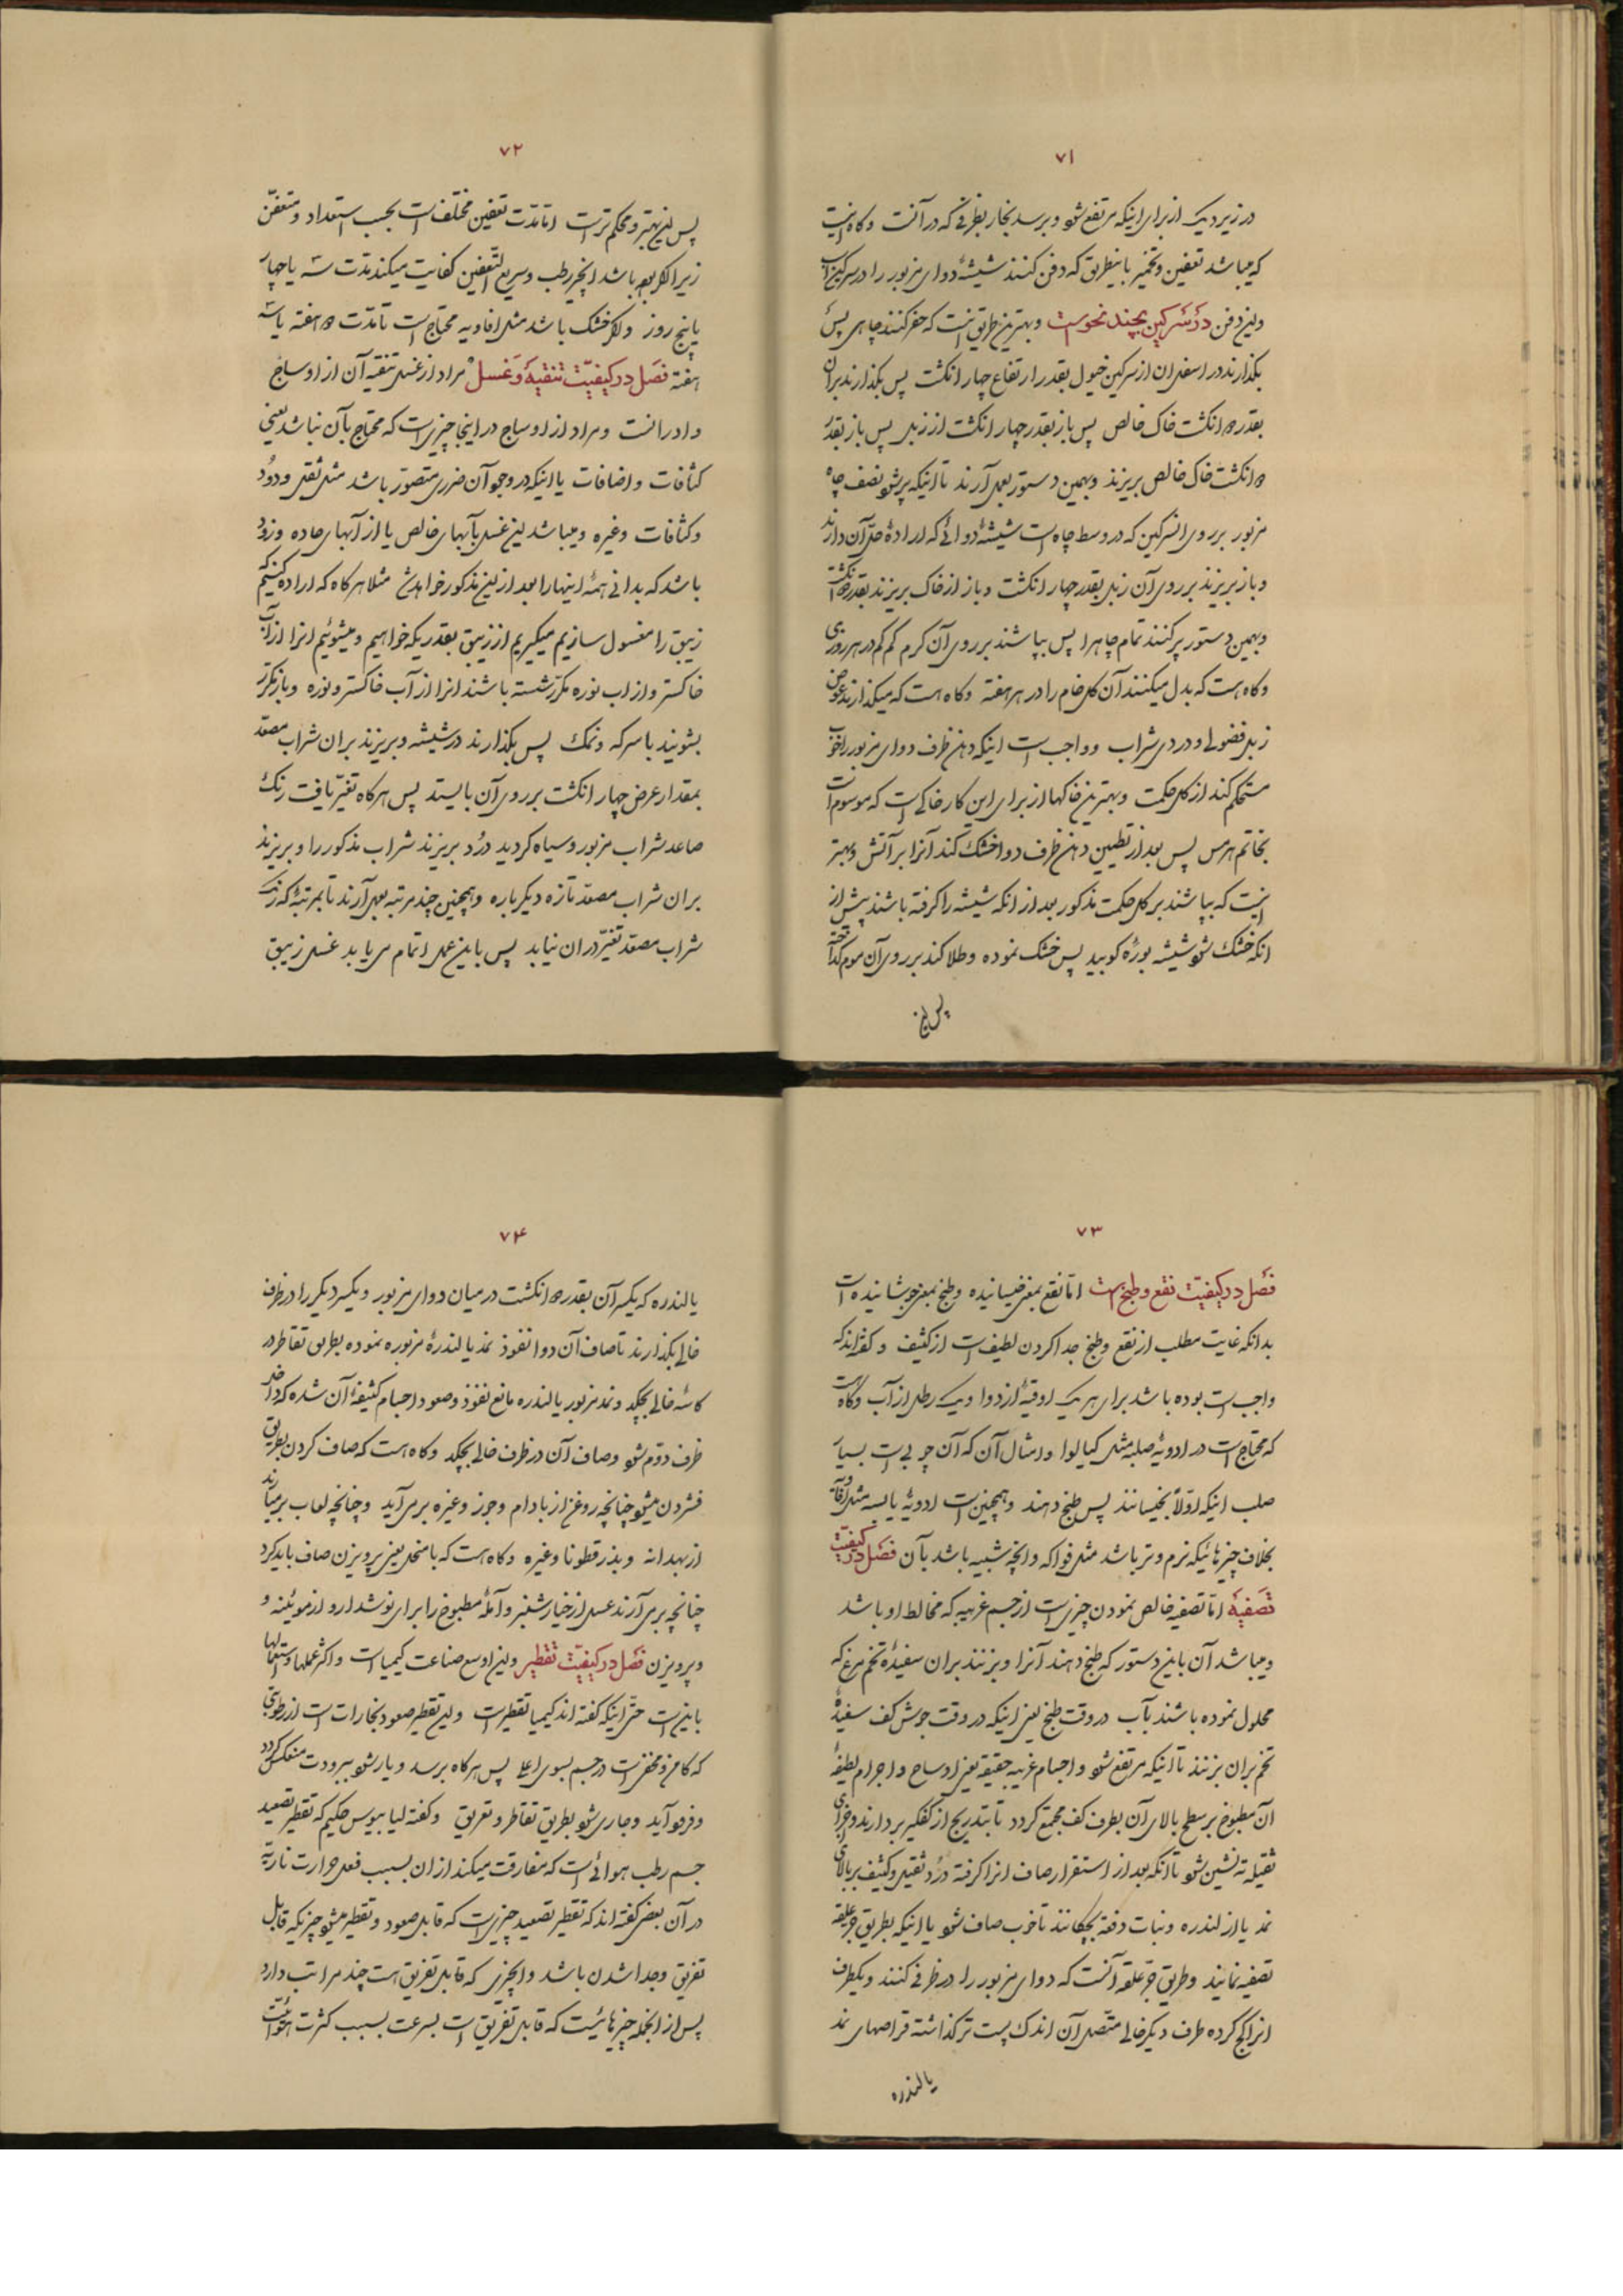 ۷۱
در زیر دیک از برای اینکه مرتفع شو و برسد بخار بظرفی که در آنست و کاه اینست
که میباشد تعفین و تخمیر باینطریق که دفن کنند شیشهٔ دوای مزبور را در سرکین اسب
و این دفن در سرکین بچند نحو است و بهترین طریق آنست که حفر کنند چاهی پس
بکذارند در اسفل ان از سرکین خیول بقدر ارتفاع چهار انکشت پس بکذارند بران
بقدر ۵ انکشت خاک خالص پس باز بقدر چهار انکشت از زبل پس باز بقدر
۵ انکشت خاک خالص بریزند و بهمین دستور بعمل آرند تا اینکه پر شو نصف چاه
مزبور بر روی انسرکین که در وسط چاه است شیشهٔ دوائی که ارادهٔ حل آن دارند
و باز بریزند بر روی آن زبل بقدر چهار انکشت و باز از خاک بریزند بقدر ۵ انکشت
و بهمین دستور پر کنند تمام چاه را پس بپاشند بر روی آن کرم کم کم در هر روزی
و کاه است که بدل میکنند آن کل خام را در هر هفته و کاه است که میکذارند عوض
زبل فضولی و دردی شراب و واجب است اینکه دهن ظرف دوای مزبور را خوب
مستحکم کند از کل حکمت و بهترین خاکها از برای این کار خاکی است که موسوم است
بخاتم هرمس پس بعد از تطیین دهن ظرف دوا خشک کند آنرا بر آتش و بهتر
اینست که بپاشند بر کل حکمت مذکور بعد از انکه شیشه را کرفته باشند پیش از
انکه خشک شو شیشه بورهٔ کوبید پس خشک نموده و طلا کند بر روی آن موم کداخته
پس این
۷۲
پس این بهتر و محکم تر است اما مدّت تعفین مختلف است بحسب استعداد و متعفّن
زیرا اکر بوده باشد انچیز رطب و سریع التعفین کفایت میکند مدّت سه یا چهار
یا پنج روز و اکر خشک باشد مثل افاویه محتاج است تا مدّت ۵ هفته یا سه
هفته فصل در کیفیّت تنقیه و غسل مراد از غسل تنقیه آن از اوساخ
و ادرانست و مراد از اوساخ در اینجا چیزی است که محتاج بآن نباشد یعنی
کثافات و اضافات یا اینکه در وجود آن ضرری متصوّر باشد مثل ثفل و دُرد
و کثافات و غیره و میباشد این غسل بآبهای خالص یا از آبهای حاده و زود
باشد که بدانی همهٔ اینها را بعد از این مذکور خواهد شد مثلا هرکاه که اراده کنیم که
زیبق را مغسول سازیم میکیریم از زیبق بقدریکه خواهیم و میشوئیم انرا از آب
خاکستر و از اب نوره مکرّر شسته باشند انرا از آب خاکستر و نوره و باز مکرّر
بشویند با سرکه و نمک پس بکذارند در شیشه و بریزند بران شراب مصعّد
بمقدار عرض چهار انکشت بر روی آن بایستد پس هرکاه تغیّر یافت رنک
صاعد شراب مزبور و سیاه کردید دُرد بریزند شراب مذکور را و بریزند
بران شراب مصعّد تازه دیکر باره و همچنین چند مرتبه بعمل آرند تا بمرتبهٔ که رنک
شراب مصعّد تغیّر دران نیابد پس باین عمل اتمام می یابد غسل زیبق
۷۳
فصل در کیفیّت نقع و طبخ است امّا نقع بمعنی خیسانیده و طبخ بمعنی جوشانیده است
بدانکه غایت مطلب از نقع و طبخ جدا کردن لطیف است از کثیف و کفته‌اند که
واجب است بوده باشد برای هر یک اوقیهٔ از دوا و یک رطل از آب و کاه است
که محتاج است در ادویهٔ صلبه مثل کیالوا و امثال آن که آن چوبی است بسیار
صلب اینکه اوّلاً بخیسانند پس طبخ دهند و همچنین است ادویهٔ یابسه مثل افاویه
بخلاف چیزهائیکه نرم و تر باشد مثل فواکه و انچه شبیه باشد بآن فصل در کیفیّت
تصفیهٔ امّا تصفیه خالص نمودن چیزی است از جسم غریبه که مخالط او باشد
و میباشد آن باین دستور که طبخ دهند آنرا و بزنند بران سفیدهٔ تخم مرغ که
محلول نموده باشند بآب در وقت طبخ یعنی اینکه در وقت جوش کف سفیدهٔ
تخم بران بزنند تا اینکه مرتفع شو و اجسام غریبه حقیقة یعنی اوساخ و اجرام لطیفهٔ
آن مطبوخ بر سطح بالای آن بطرف کف مجتمع کردد تا بتدریج از کفکیر بردارند و اجزای
ثقیله ته نشین شو تا انکه بعد از استقرار صاف انرا کرفته دُرد ثقیل و کثیف بر بالای
نمد یا از لندره و نبات دفته بچکانند تا خوب صاف شو یا اینکه بطریق جرّ علقه
تصفیه نمایند و طریق جرّ علقه آنست که دوای مزبور را در ظرفی کنند و یکطرف
انرا کج کرده طرف دیکر خالی متّصل آن اندک پست تر کذاشته قراصهای نمد
یا لندره
۷۴
یا لندره که یکسر آن بقدر ۵ انکشت در میان دوای مزبور و یکسر دیکر را در ظرف
خالی بکذارند تا صاف آن دوا نفوذ نمد یا لندرهٔ مزبوره نموده بطریق تقاطر در
کاسهٔ خالی بچکد و نمد مزبور یا لندره مانع نفوذ و صعود اجسام کثیفهٔ آن شده که داخل
ظرف دوّم شو و صاف آن در ظرف خالی بچکد و کاه است که صاف کردن بطریق
فشردن میشو چنانچه روغن از بادام و جوز و غیره بر می آید و چنانچه لعاب بر میآرند
از بهدانه و بذر قطونا و غیره و کاه است که با منخل یعنی پرویزن صاف باید کرد
چنانچه بر می آرند عسل از خیار شنبر و آملهٔ مطبوخ را برای نوشدارو از موئینه و
و پرویزن فصل در کیفیّت تقطیر و این اوسع صناعت کیمیا است و اکثر عملها و استعمالها
باین است حتّی اینکه کفته اند کیمیا تقطیر است و این تقطیر صعود بخارات است از رطوبتی
که کامن و مخفی است در جسم بسوی اعلی پس هرکاه برسد و یار شو ببرودت منعکس کردد
و فرود آید و جاری شو بطریق تقاطر و تعریق و کفته لیابیوس حکیم که تقطیر تصعید
جسم رطب هوائی است که مفارقت میکند از ان بسبب فعل حرارت ناریه
در آن بعض کفته اند که تقطیر تصعید چیزی است که قابل صعود و تقطیر میشو چیزیکه قابل
تفریق و جدا شدن باشد و انچیزی که قابل تفریق است چند مراتب دارد
پس از انجمله چیزهائیست که قابل تفریق است بسرعت بسبب کثرت هوائیت